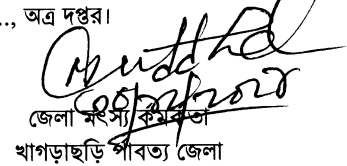 .., অত্র দপ্তর।
জেলা মৎস্য কর্মকর্তা
খাগড়াছড়ি পার্বত্য জেলা